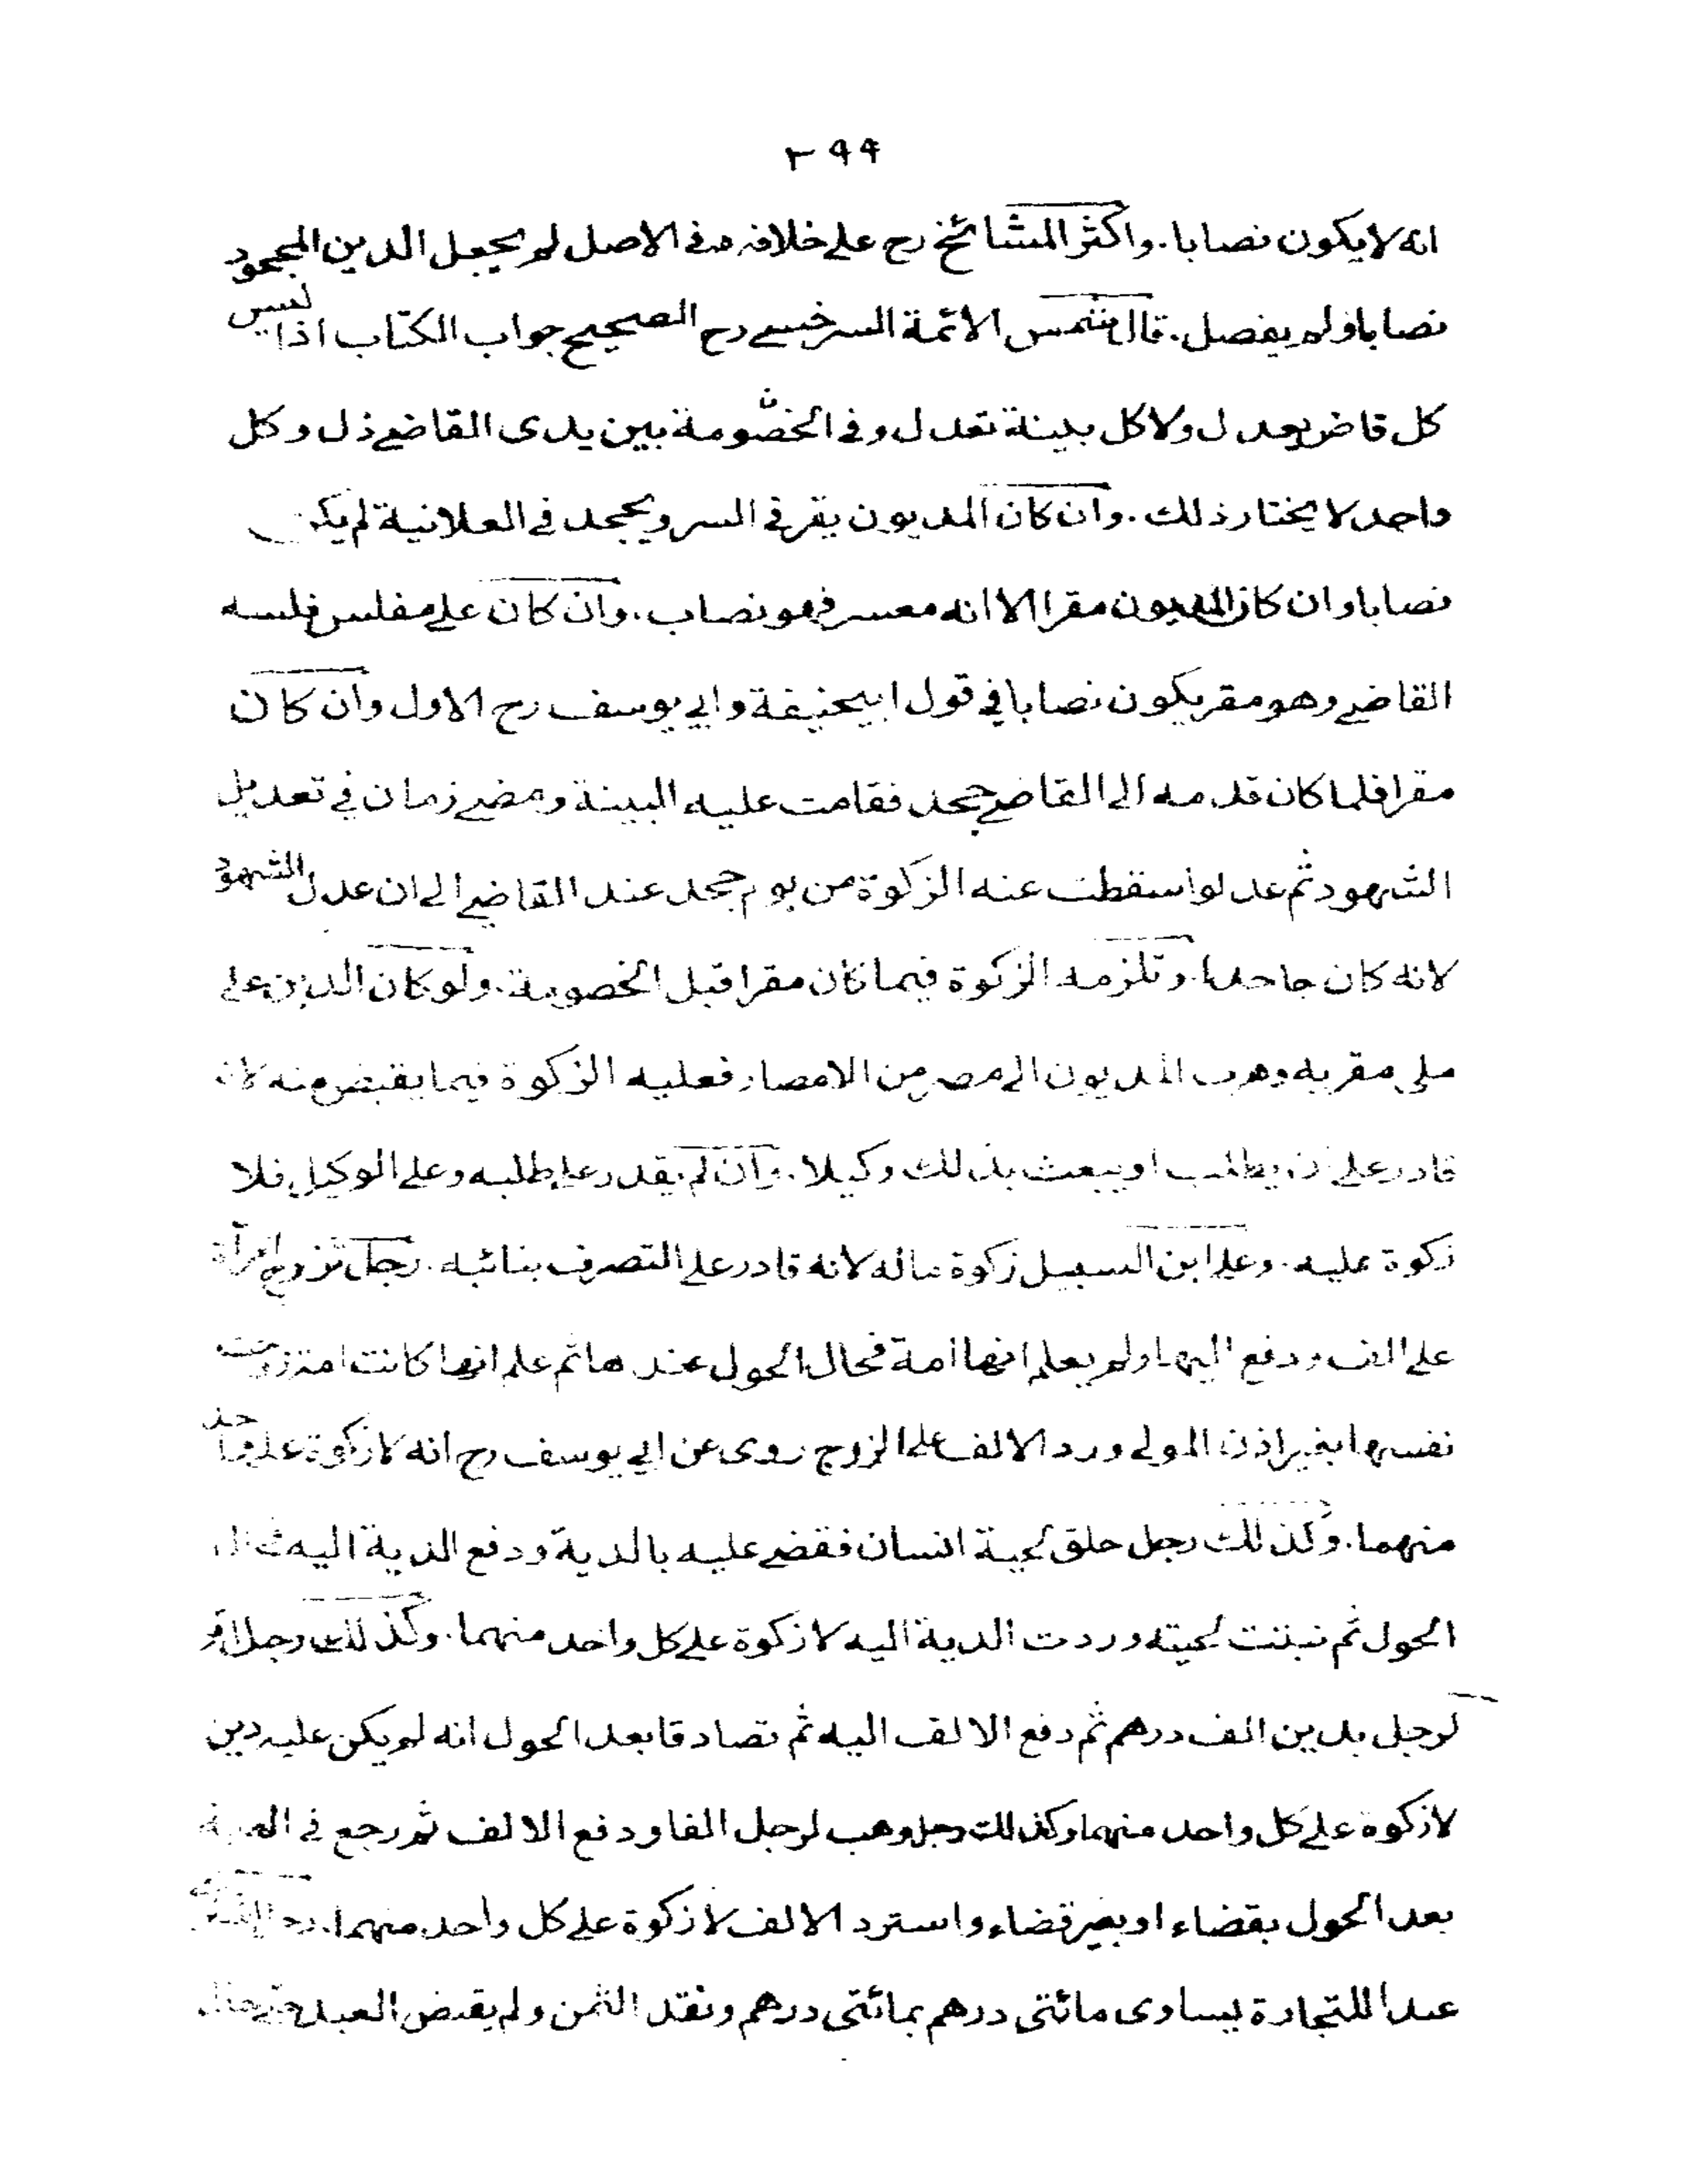 ٢٩٩
انه لا يكون نصابا. واكثر المشائخ رح على خلافه. وفي الاصل لم يجعل الدين المجحود
نصابا ولم يفصل. قال شمس الائمة السرخسي رح الصحيح جواب الكتاب اذ ليس
كل قاض يعدل ولا كل بينة تعدل وفي الخصومة بين يدى القاضي ذل وكل
واحد لا يختار ذلك. وان كان المديون يقر في السر ويجحد في العلانية لم يكن
نصابا وان كان المديون مقرا الا انه معسر فهو نصاب. وان كان على مفلس فلسه
القاضي وهو مقر يكون نصابا في قول ابيحنيفة وابي يوسف رح الاول وان كان
مقرا فلما كان قدمه الى القاضي جحد فقامت عليه البينة ومضى زمان في تعديل
الشهود ثم عدلوا سقطت عنه الزكوة من يوم جحد عند القاضي الى ان عدل الشهود
لانه كان جاحدا. وتلزمه الزكوة فيما كان مقرا قبل الخصومة. ولو كان الدين على
ملي مقر به وهرب المديون الى مصر من الامصار فعليه الزكوة فيما يقبض منه لانه
قادر على ان يطلب او يبعث بذلك وكيلا. وان لم يقدر على طلبه وعلى الوكيل فلا
زكوة عليه. وعلى ابن السبيل زكوة ماله لانه قادر على التصرف بنائبه. رجل تزوج امرأة
على الف ودفع اليها ولم يعلم انها امة فحال الحول عندها ثم علم انها كانت امة زوجت
نفسها بغير اذن المولى ورد الالف على الزوج روى عن ابي يوسف رح انه لا زكوة على واحد
منهما. وكذلك رجل حلق لحية انسان فقضى عليه بالدية ودفع الدية اليه فحال
الحول ثم نبتت لحيته وردت الدية اليه لا زكوة على كل واحد منهما. وكذلك رجل اقر
لرجل بدين الف درهم ثم دفع الالف اليه ثم تصادقا بعد الحول انه لم يكن عليه دين
لا زكوة على كل واحد منهما وكذلك رجل وهب لرجل الفا ودفع الالف ثم رجع في الهبة
بعد الحول بقضاء او بغير قضاء واسترد الالف لا زكوة على كل واحد منهما. رجل اشترى
عبدا للتجارة يساوى مائتى درهم بمائتى درهم ونقد الثمن ولم يقبض العبد حتى حال